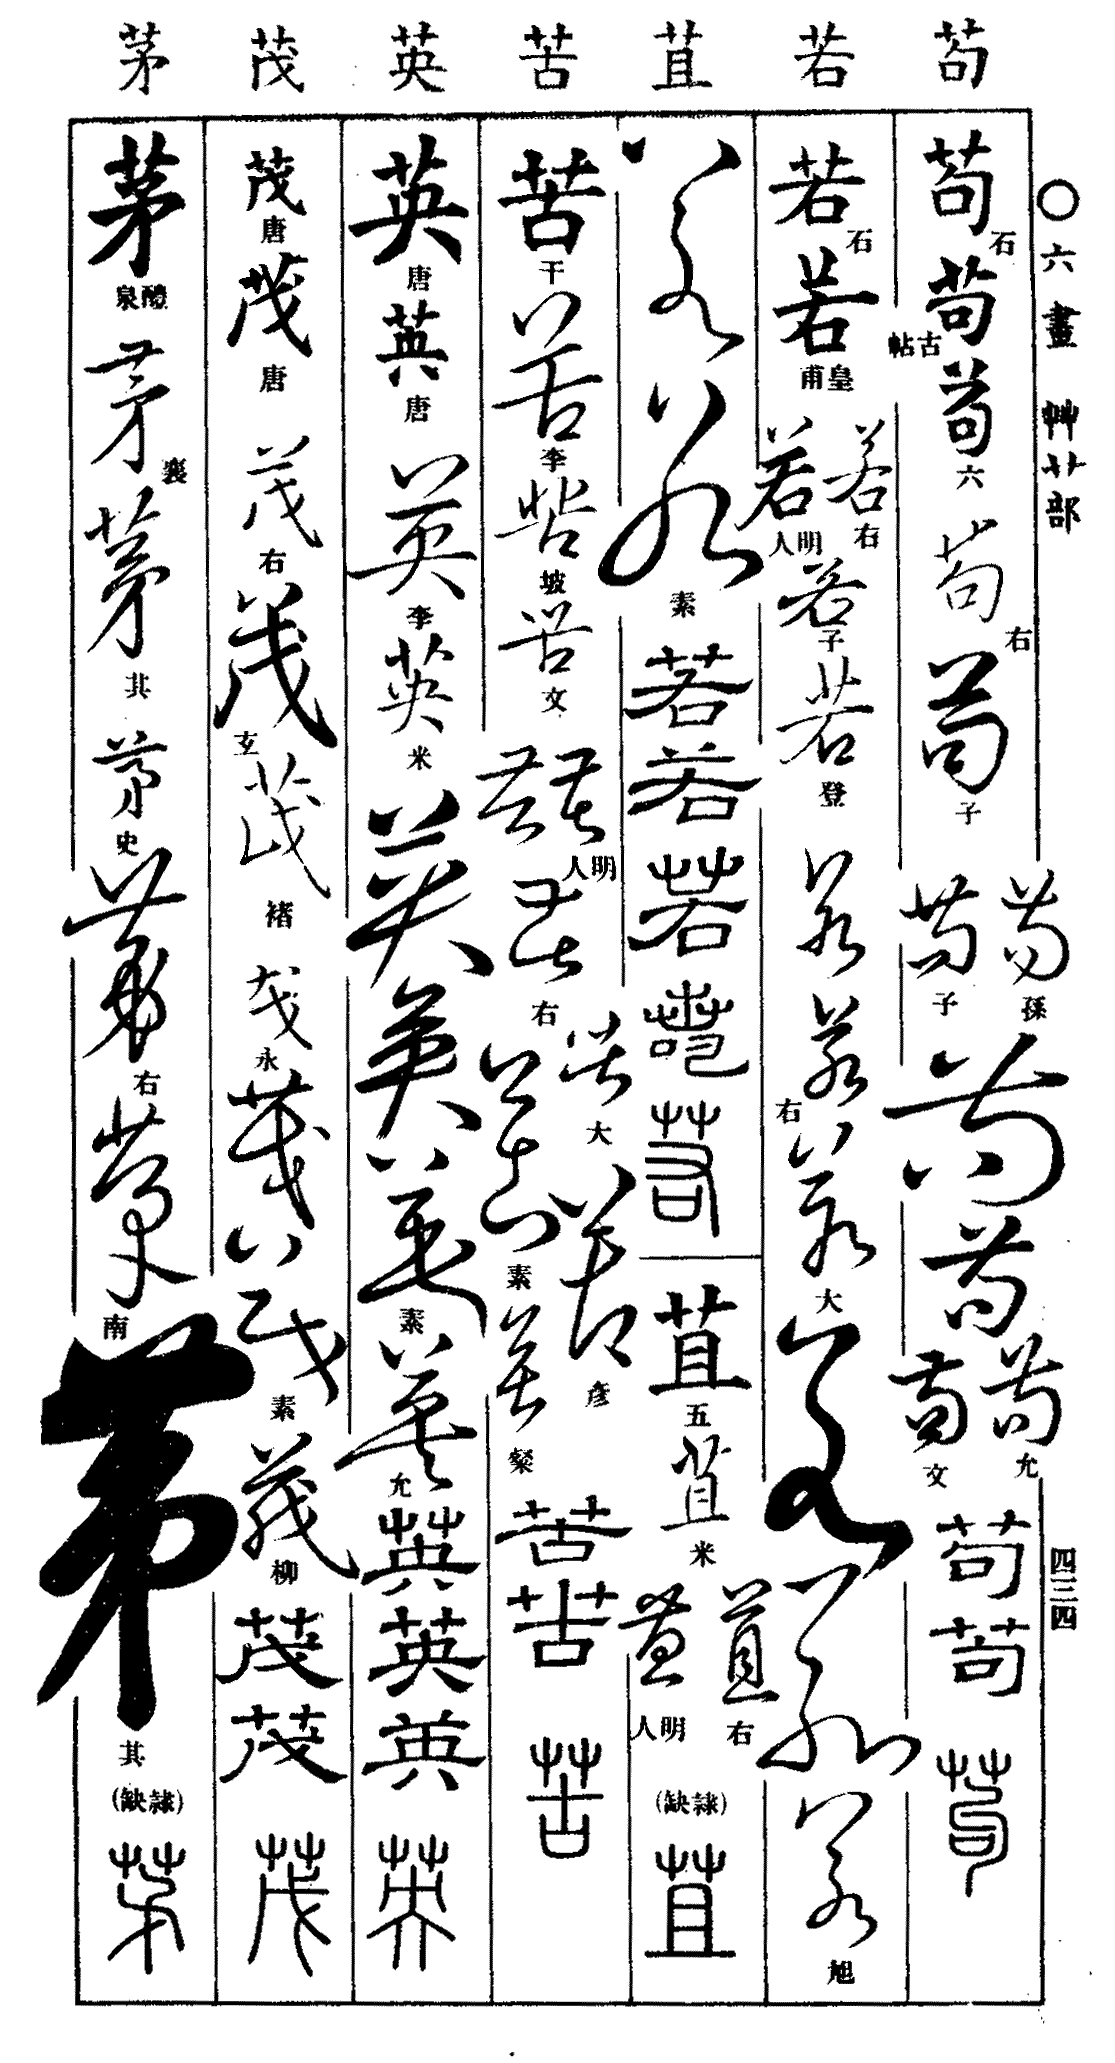 苟 若 苴 苦 英 茂 茅
〇六畫 艸艹部
四三四
苟石
苟古帖
苟六
苟右
苟子
苟孫
苟子
苟
苟
苟允
苟文
苟
苟
苟
若石
若皇甫
若右
若明人
若子
若登
若
若右
若大
若
若
若旭
若
若素
若
若
若
若
若
苴五
苴米
苴右
苴明人
(隸缺)
苴
苦干
苦李
苦坡
苦文
苦
苦明人
苦右
苦大
苦素
苦彦
苦粲
苦
苦
苦
英唐
英唐
英李
英米
英
英
英素
英允
英
英
英
英
茂唐
茂唐
茂右
茂玄
茂褚
茂永
茂
茂素
茂柳
茂
茂
茂
茅醴泉
茅襄
茅其
茅史
茅右
茅南
茅其
(隸缺)
茅